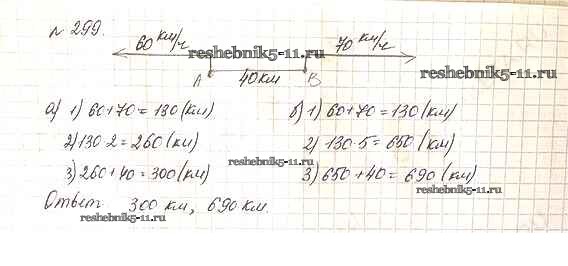 № 299.
60 км/ч 70 км/ч
reshebnik5-11.ru
reshebnik5-11.ru
А 40 км В
а) 1) 60+70=130(км) б) 1) 60+70=130(км)
2) 130·2=260(км) 2) 130·5=650(км)
reshebnik5-11.ru reshebnik5-11.ru
3) 260+40=300(км) 3) 650+40=690(км)
Ответ 300 км, 690 км.
reshebnik5-11.ru